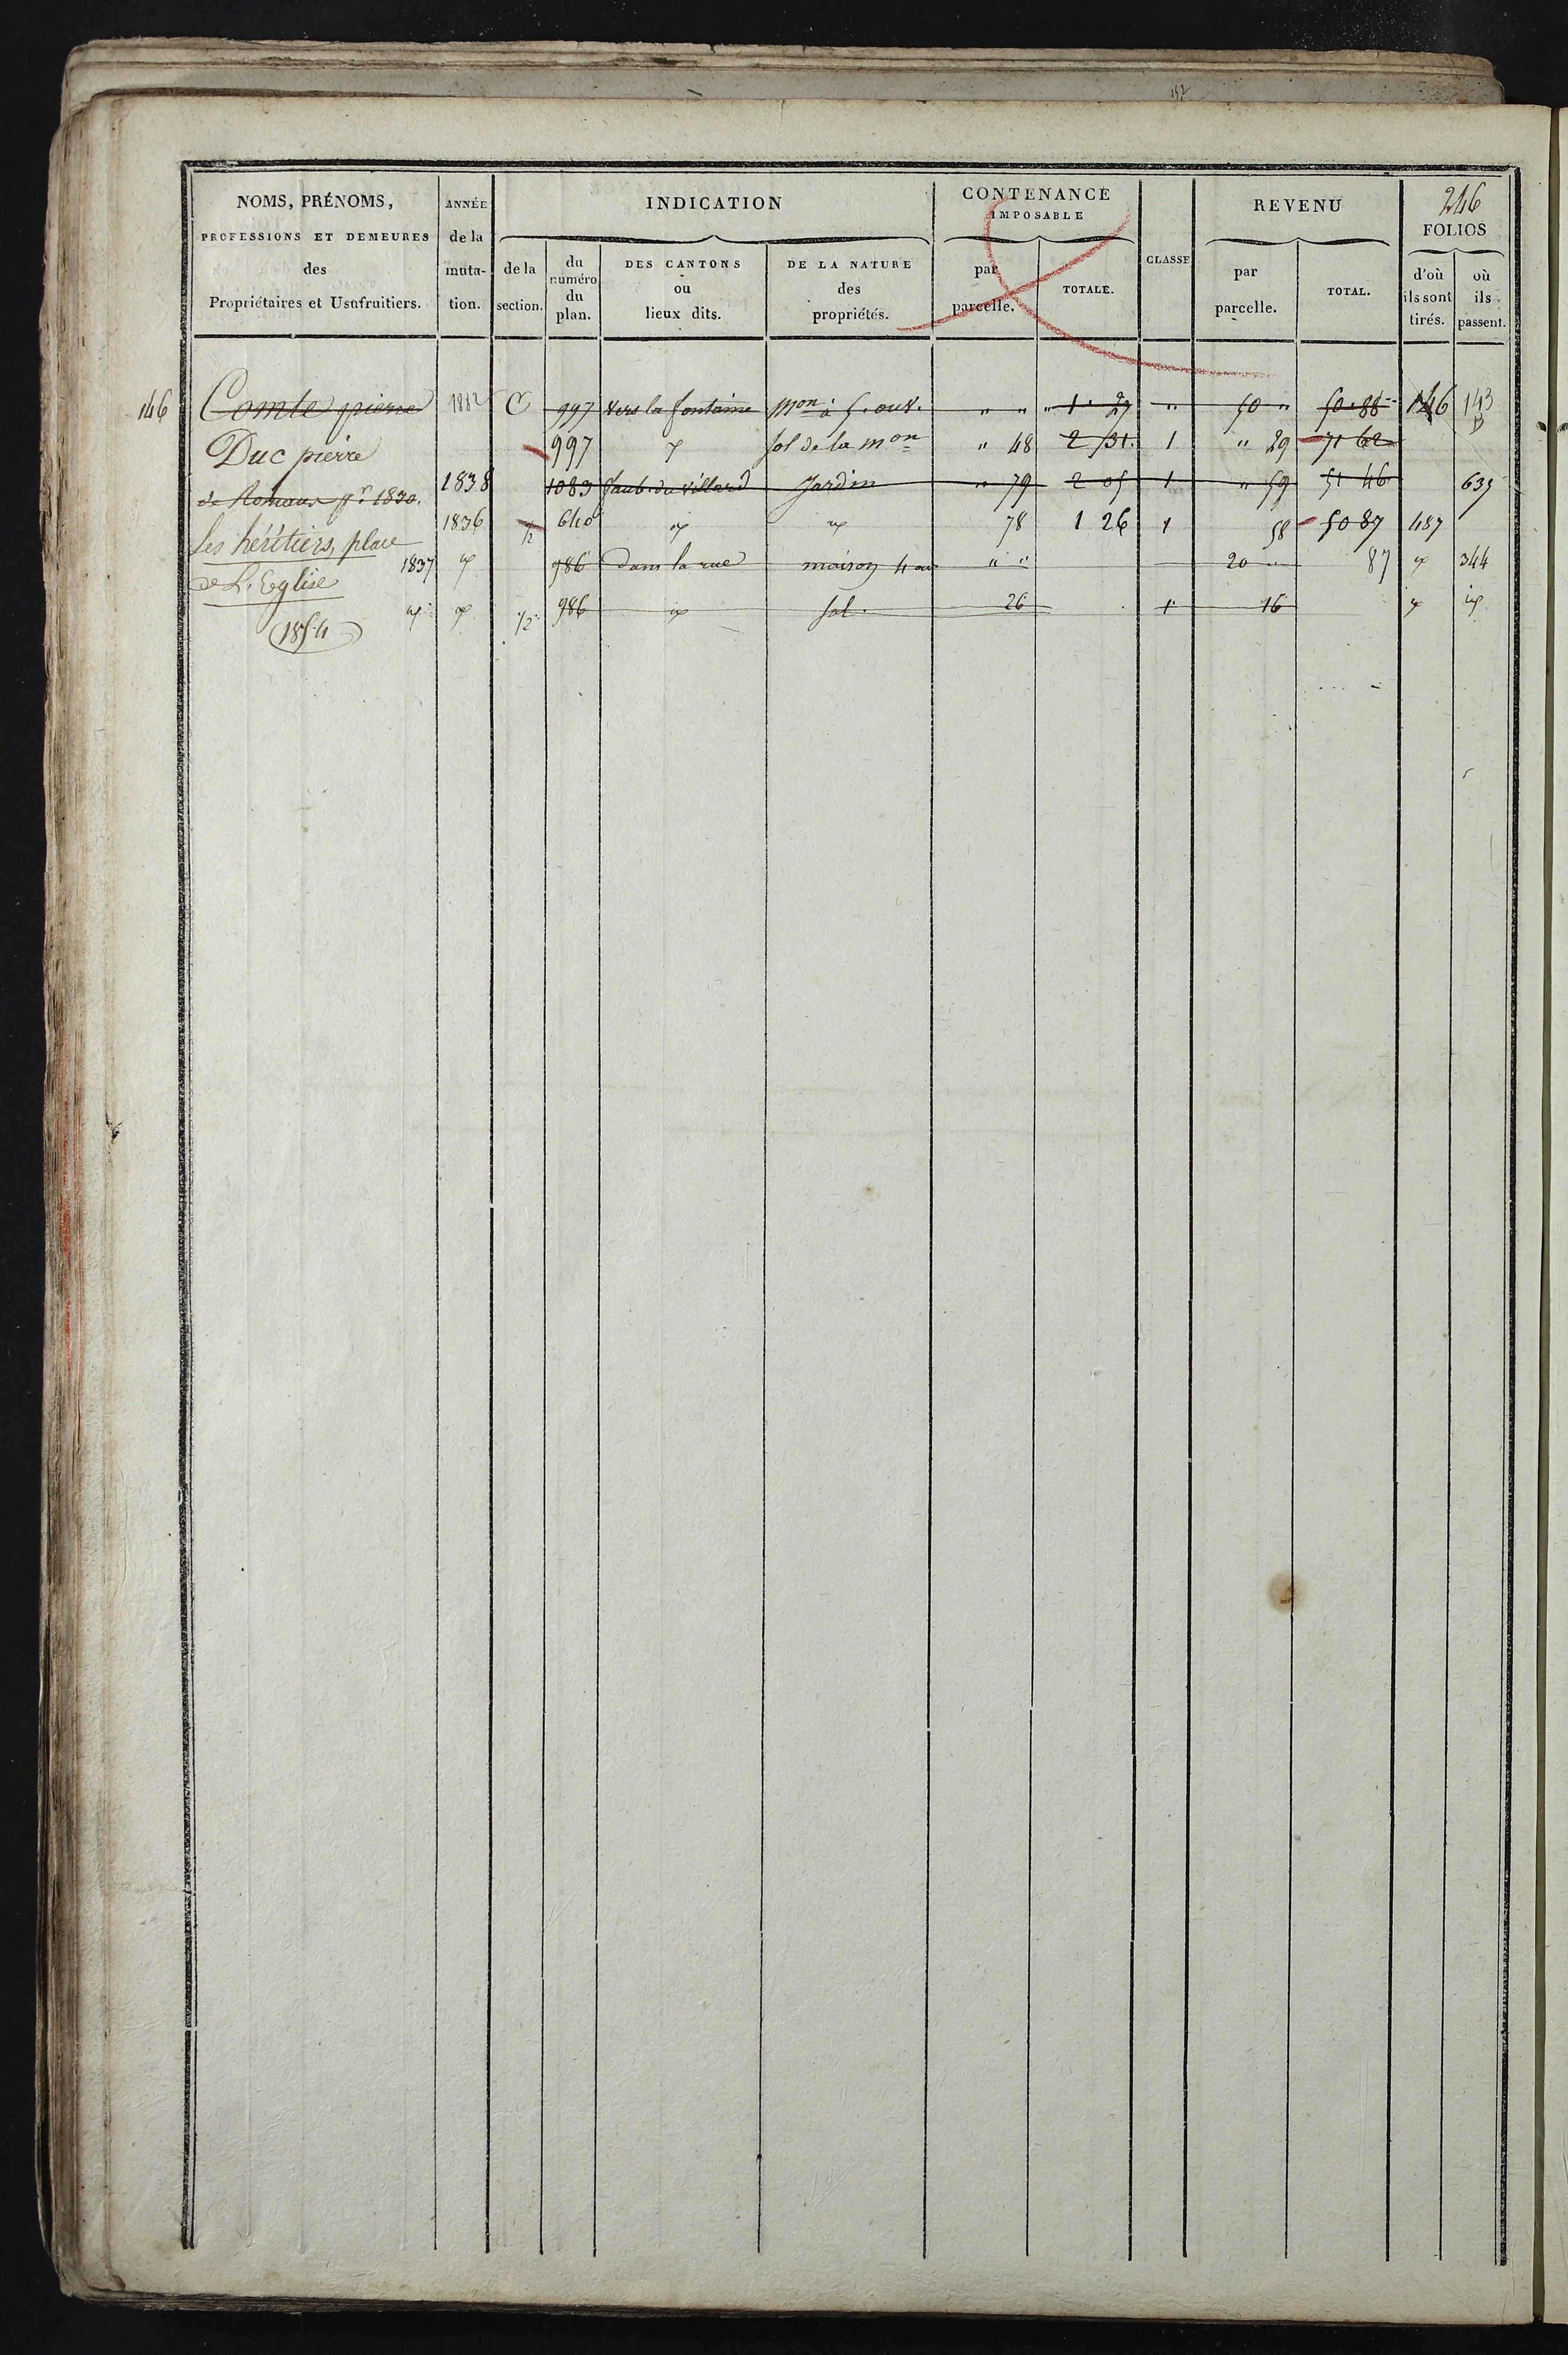 157
246
NOMS, PRÉNOMS,
PROFESSIONS ET DEMEURES
des
Propriétaires et Usufruitiers.
ANNÉE
de la
muta-
tion.
INDICATION
de la
section.
du
numéro
du
plan.
DES CANTONS
ou
lieux dits.
DE LA NATURE
des
propriétés.
CONTENANCE
IMPOSABLE
par
parcelle.
TOTALE.
CLASSE
REVENU
par
parcelle.
TOTAL.
FOLIOS
d'où
ils sont
tirés.
où
ils
passent.
146 Comte pierre 1882 C 997 vers la fontaine Mon à 5. ouv. " " " 1 27 " 50 " 50 88 146 143
Duc pierre 997 sol de la mon " 48 2 31 1 " 29 71 62
1838 1083 faub. du villard Jardin " 79 2 05 1 " 59 51 46 635
1830.
1836 1/2 640 78 1 26 1 58 50 87 487
Les héritiers, place
de L'Eglise
1837 986 dans la rue maison 4 ou " " 20 87 344
1/2 986 sol. 26 1 16
1854